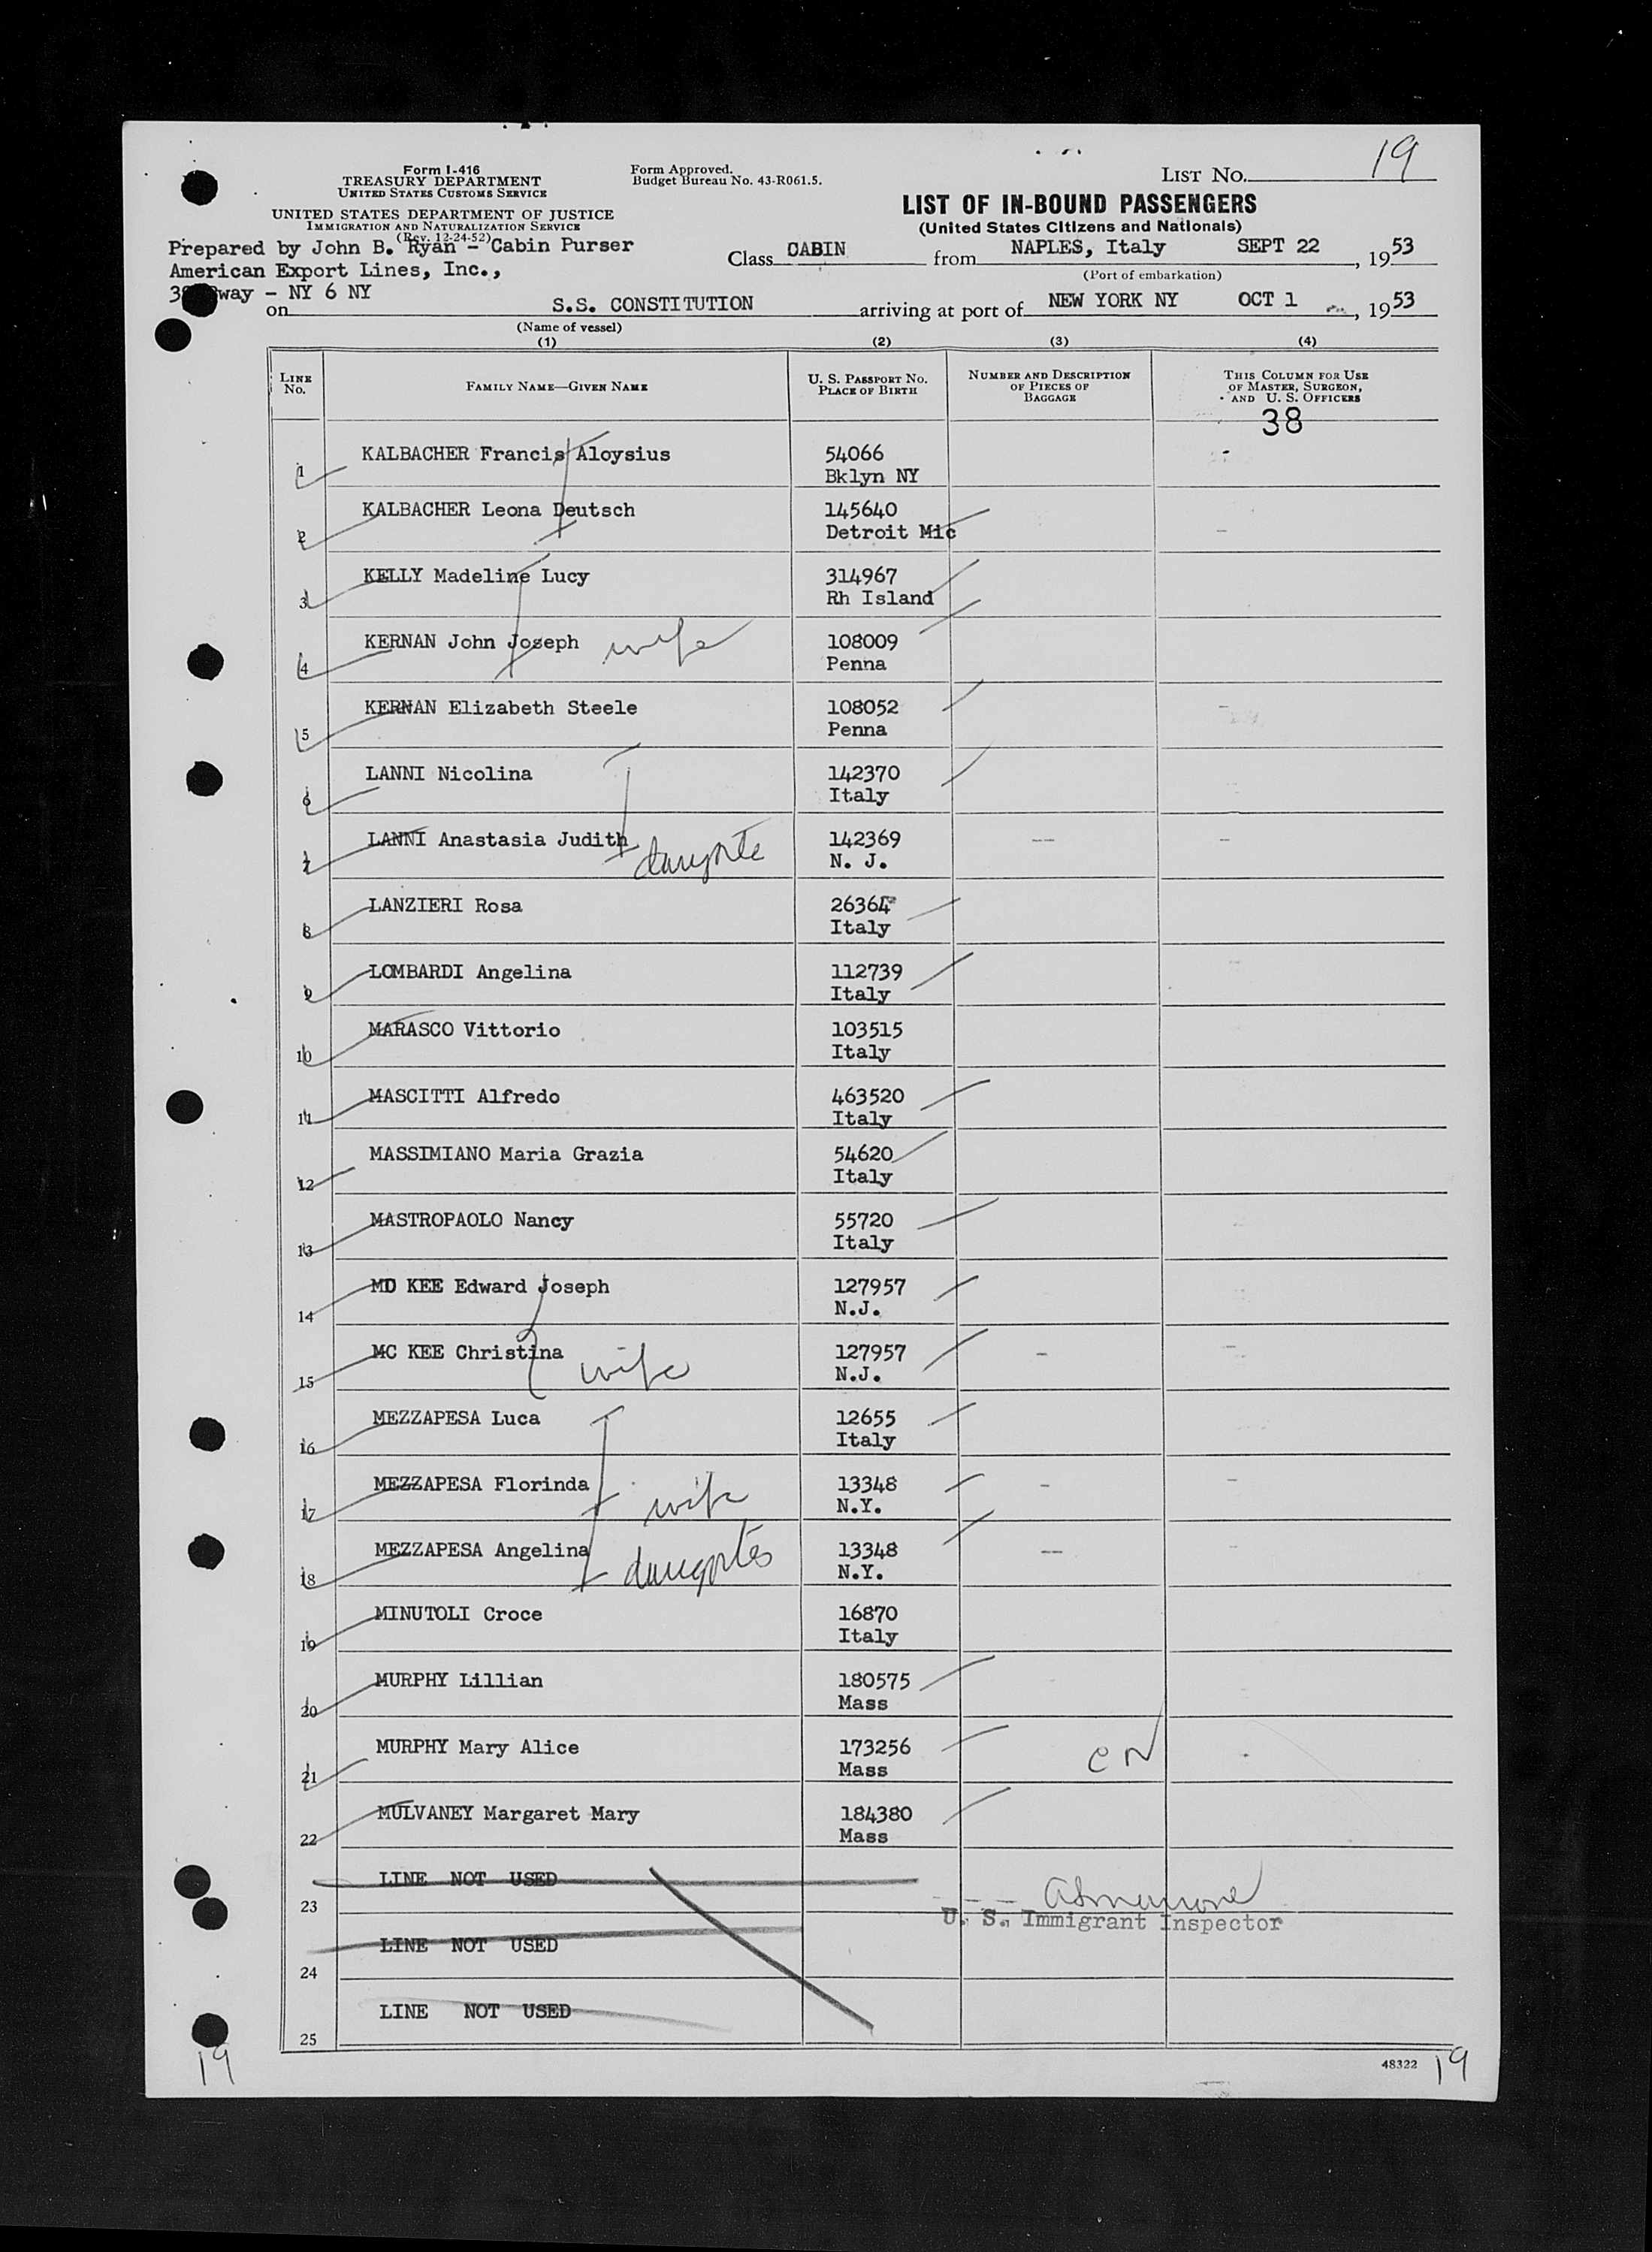 19
Form I-416
TREASURY DEPARTMENT
UNITED STATES CUSTOMS SERVICE
Form Approved.
Budget Bureau No. 43-R061.5.
LIST NO.
UNITED STATES DEPARTMENT OF JUSTICE
IMMIGRATION AND NATURALIZATION SERVICE
(Rev. 12-24-52)
LIST OF IN-BOUND PASSENGERS
(United States Citizens and Nationals)
Prepared by John B. Ryan - Cabin Purser
American Export Lines, Inc.,
way - NY 6 NY
Class CABIN from NAPLES, Italy SEPT 22, 1953
(Port of embarkation)
on S.S. CONSTITUTION arriving at port of NEW YORK NY OCT 1, 1953
(Name of vessel)
(1) (2) (3) (4)
LINE NO. FAMILY NAME—GIVEN NAME U. S. PASSPORT NO. PLACE OF BIRTH NUMBER AND DESCRIPTION OF PIECES OF BAGGAGE THIS COLUMN FOR USE OF MASTER, SURGEON, AND U. S. OFFICERS
38
1 KALBACHER Francis Aloysius 54066
Bklyn NY
2 KALBACHER Leona Deutsch 145640
Detroit Mic
3 KELLY Madeline Lucy 314967
Rh Island
4 KERNAN John Joseph wife 108009
Penna
5 KERNAN Elizabeth Steele 108052
Penna
6 LANNI Nicolina 142370
Italy
7 LANNI Anastasia Judith 142369
N. J.
8 LANZIERI Rosa 26364
Italy
9 LOMBARDI Angelina 112739
Italy
10 MARASCO Vittorio 103515
Italy
11 MASCITTI Alfredo 463520
Italy
12 MASSIMIANO Maria Grazia 54620
Italy
13 MASTROPAOLO Nancy 55720
Italy
14 MD KEE Edward Joseph 127957
N.J.
15 MC KEE Christina wife 127957
N.J.
16 MEZZAPESA Luca 12655
Italy
17 MEZZAPESA Florinda wife 13348
N.Y.
18 MEZZAPESA Angelina 13348
N.Y.
19 MINUTOLI Croce 16870
Italy
20 MURPHY Lillian 180575
Mass
21 MURPHY Mary Alice 173256
Mass
22 MULVANEY Margaret Mary 184380
Mass
23 LINE NOT USED
U. S. Immigrant Inspector
24 LINE NOT USED
25 LINE NOT USED
19
48322
19